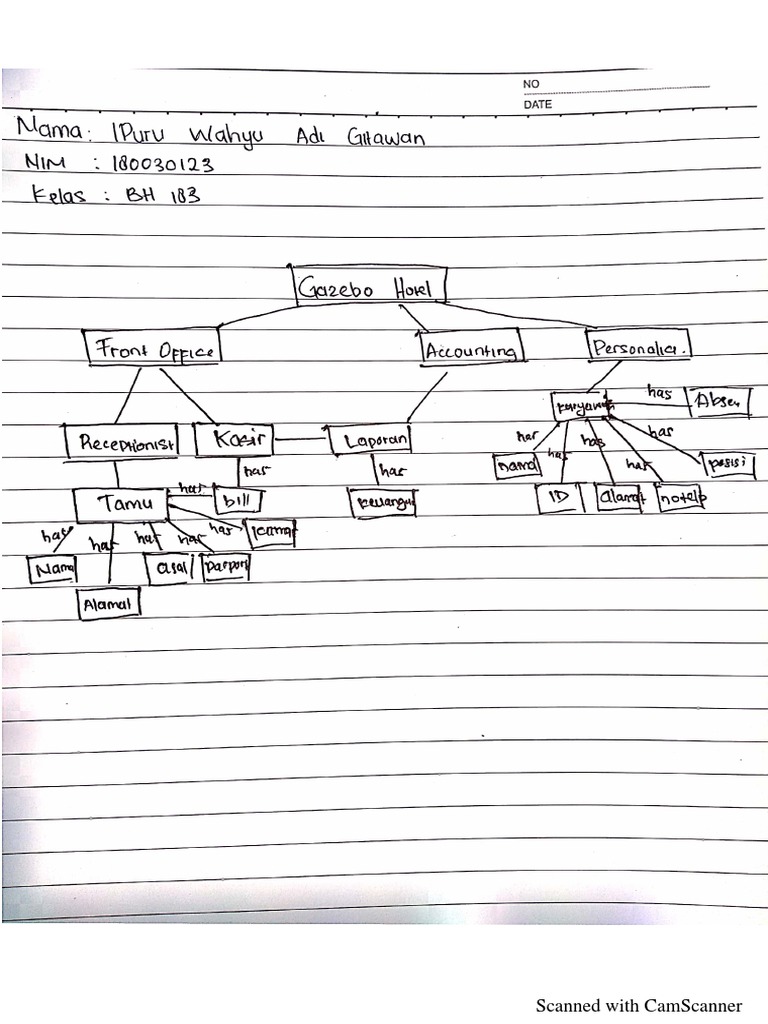 NO
DATE
Nama : IPutu Wahyu Adi Gitawan
NIM : 180030123
Kelas : BH 183
Gazebo Hotel
Front Office Accounting Personalia.
karyawan has Absen
Receptionist Kasir Laporan
has has has has has
has has
nama posisi
Tamu has bill keuangan ID alamat notelp
has has has has has kamar
Nama asal paspor
Alamat
Scanned with CamScanner